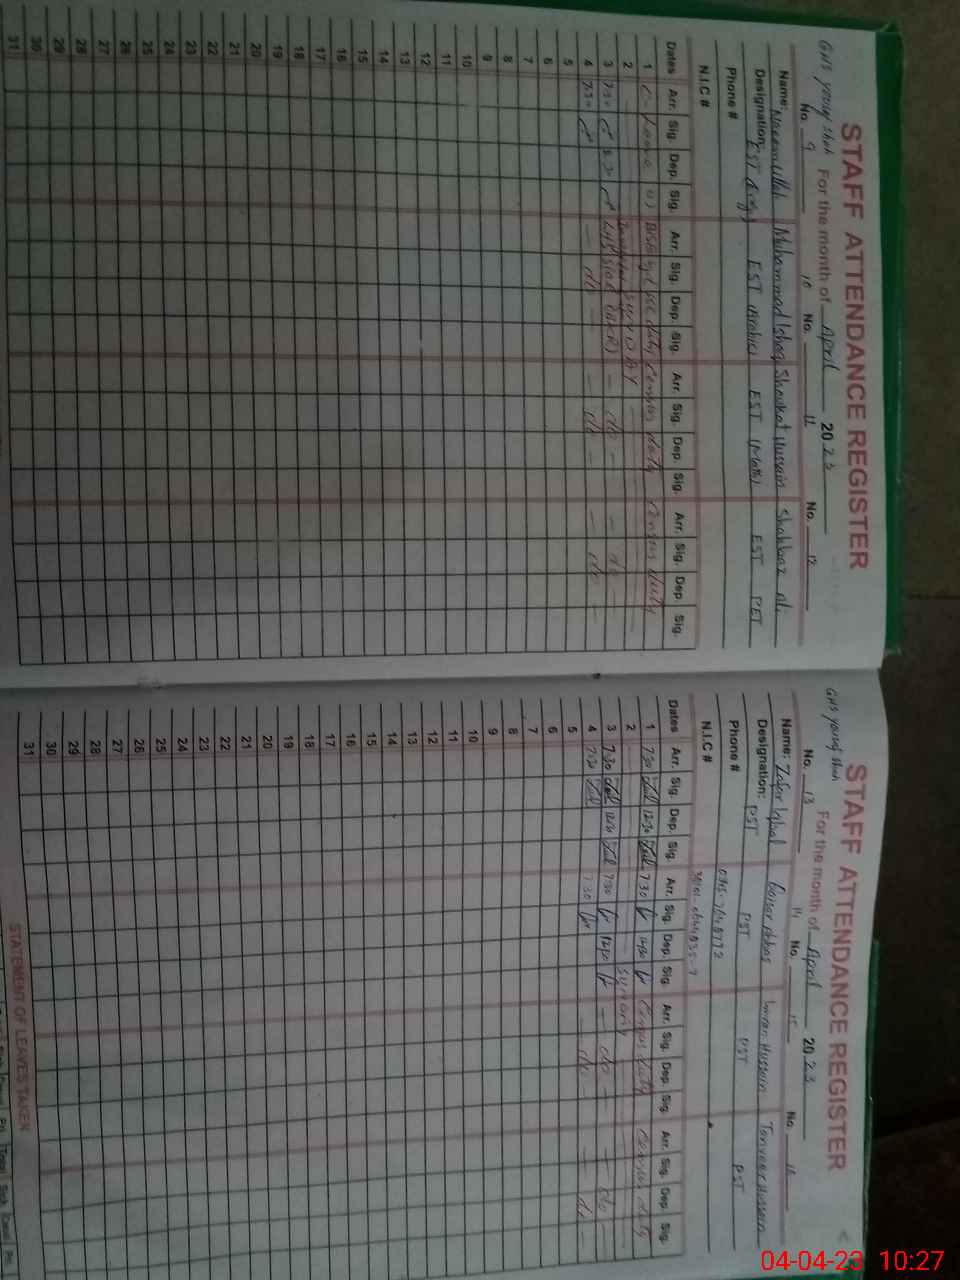 STAFF ATTENDANCE REGISTER
GHS young Shah For the month of April 2023
No. 9 10 No. 11 No. 12
Name: Naeem ullah Muhammad Ishaq Shaukat Hussain Shahbaz Ali
Designation: EST EST (Arabic) EST (Math) EST PET
Phone #
N.I.C #
Dates Arr. Sig. Dep. Sig. Arr. Sig. Dep. Sig. Arr. Sig. Dep Sig. Arr. Sig. Dep Sig.
1 C-Leave duty Census duty Census duty
2 SUNDAY
3 7:30 - do - - do -
4 7:30 - do - do - do -
5
6
7
8
9
10
11
12
13
14
15
16
17
18
19
20
21
22
23
24
25
26
27
28
29
30
31
STAFF ATTENDANCE REGISTER
GHS young Shah For the month of April 2023
No. 13 14 No. 15 No. 16
Name: Zafar Iqbal Qaisar Abbas Imran Hussain Tanveer Hussain
Designation: PST PST PST PST
Phone #
N.I.C #
Dates Arr. Sig. Dep. Sig. Arr. Sig. Dep. Sig. Arr. Sig. Dep. Sig. Arr. Sig. Dep. Sig.
1 7:30 12:30 7:30 12:30 Census duty Census duty
2 SUNDAY
3 7:30 12:30 7:30 12:30 - do - - do -
4 7:30 7:30 - do - do
5
6
7
8
9
10
11
12
13
14
15
16
17
18
19
20
21
22
23
24
25
26
27
28
29
30
31
STATEMENT OF LEAVES TAKEN
04-04-23 10:27